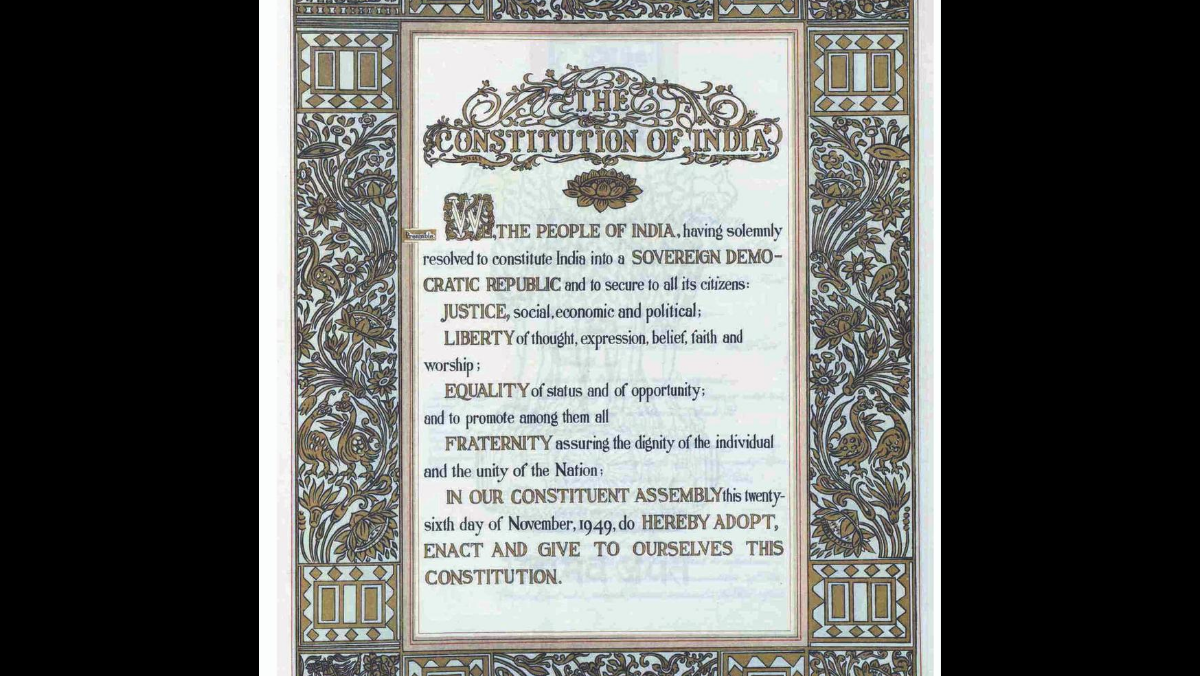 THE
CONSTITUTION OF INDIA
WE, THE PEOPLE OF INDIA, having solemnly
Preamble.
resolved to constitute India into a SOVEREIGN DEMO-
CRATIC REPUBLIC and to secure to all its citizens:
JUSTICE, social, economic and political;
LIBERTY of thought, expression, belief, faith and
worship;
EQUALITY of status and of opportunity;
and to promote among them all
FRATERNITY assuring the dignity of the individual
and the unity of the Nation;
IN OUR CONSTITUENT ASSEMBLY this twenty-
sixth day of November, 1949, do HEREBY ADOPT,
ENACT AND GIVE TO OURSELVES THIS
CONSTITUTION.